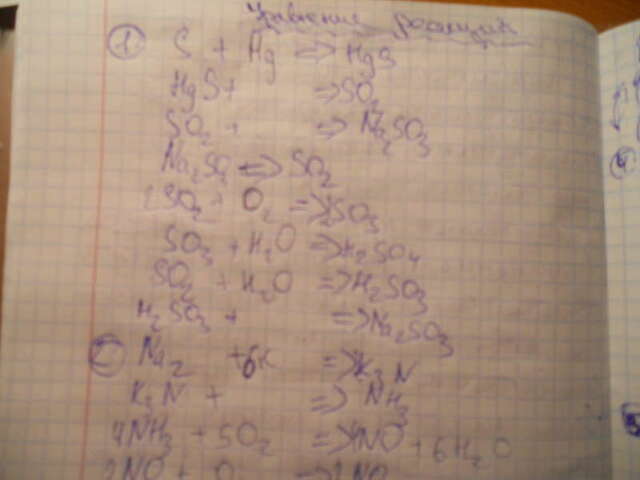 Уравнение реакций
① S + Hg => HgS
HgS + => SO2
SO2 + => Na2SO3
Na2SO3 => SO2
2SO2 + O2 => 2SO3
SO3 + H2O => H2SO4
SO2 + H2O => H2SO3
H2SO3 + => Na2SO3
② N2 + 6K => K3N
K3N + => NH3
4NH3 + 5O2 => 4NO + 6H2O
2NO + O => 2NO